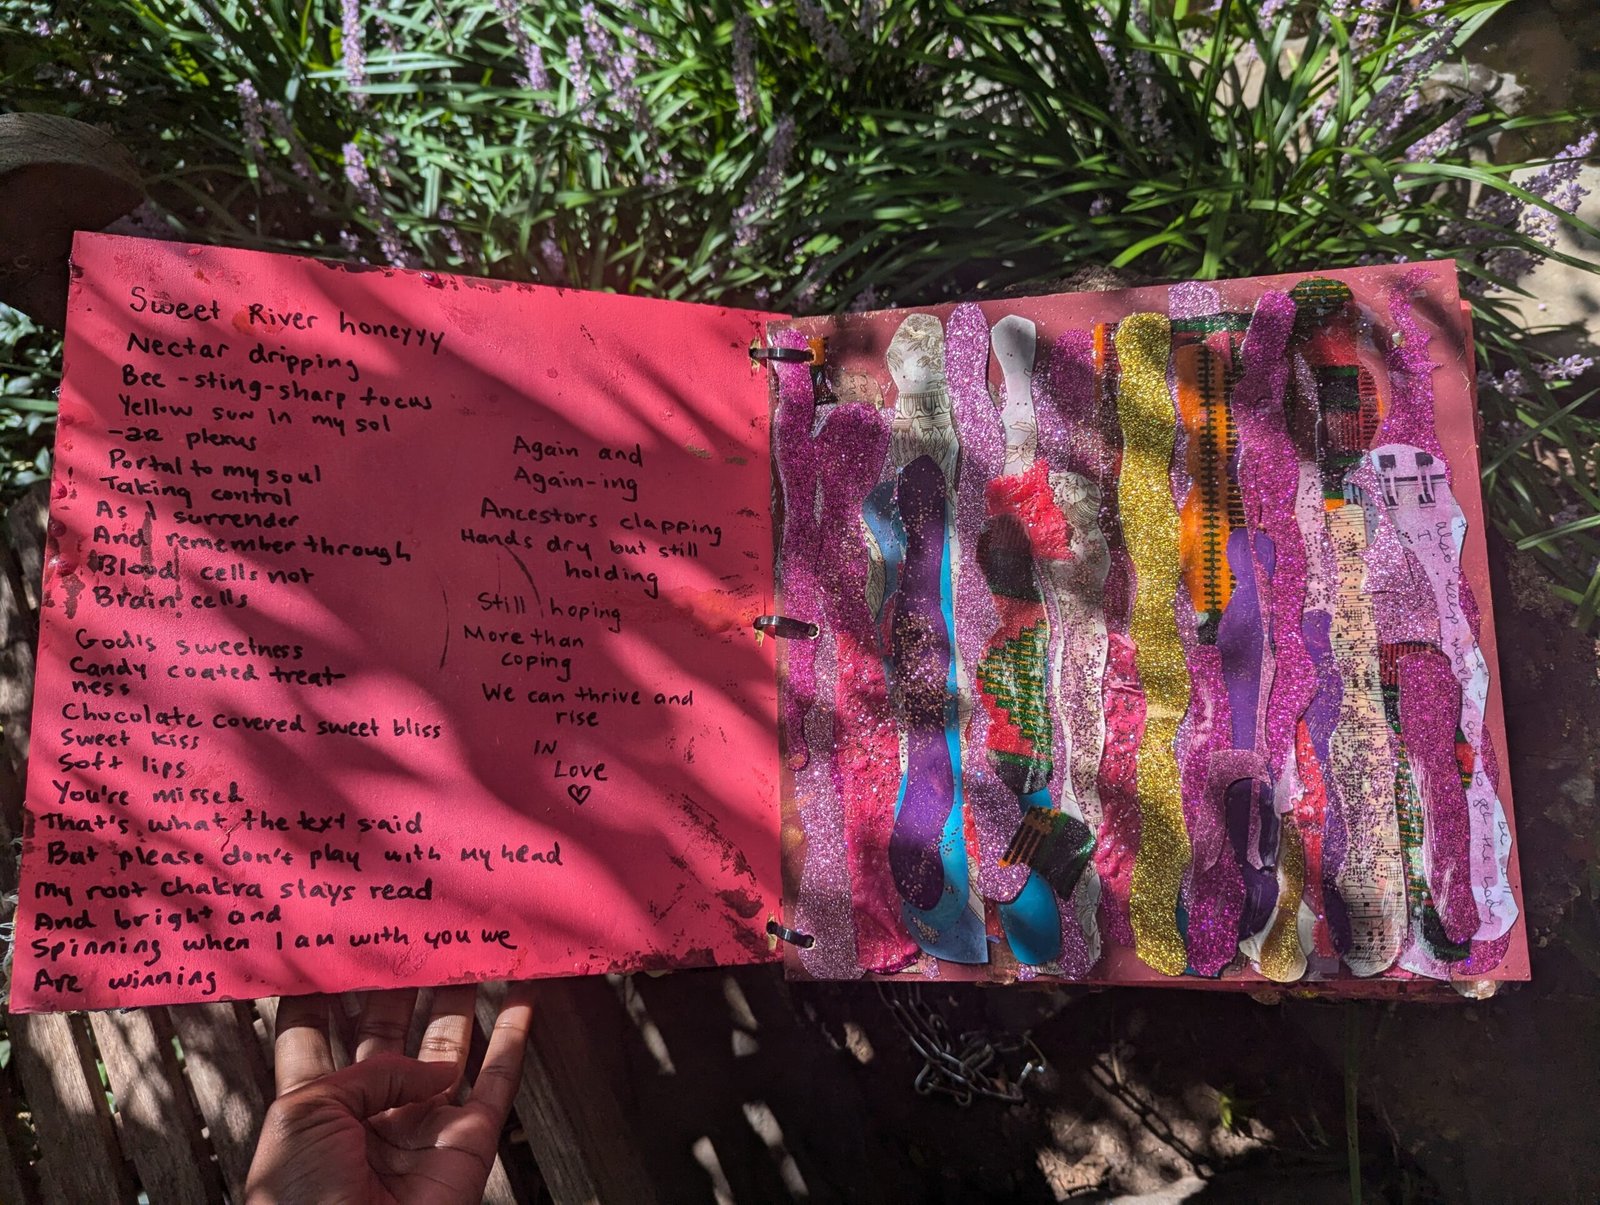 Sweet River honeyyy
Nectar dripping
Bee-sting-sharp focus
Yellow sun in my sol
-ar plexus
Portal to my soul
Taking control
As I surrender
And remember through
Blood cells not
Brain cells
God's sweetness
Candy coated treat
ness
Chocolate covered sweet bliss
Sweet kiss
Soft lips
You're missed
That's what the text said
But please don't play with my head
My root chakra stays read
And bright and
Spinning when I am with you we
Are winning
Again and
Again-ing
Ancestors clapping
Hands dry but still
holding
Still hoping
More than
coping
We can thrive and
rise
IN
Love